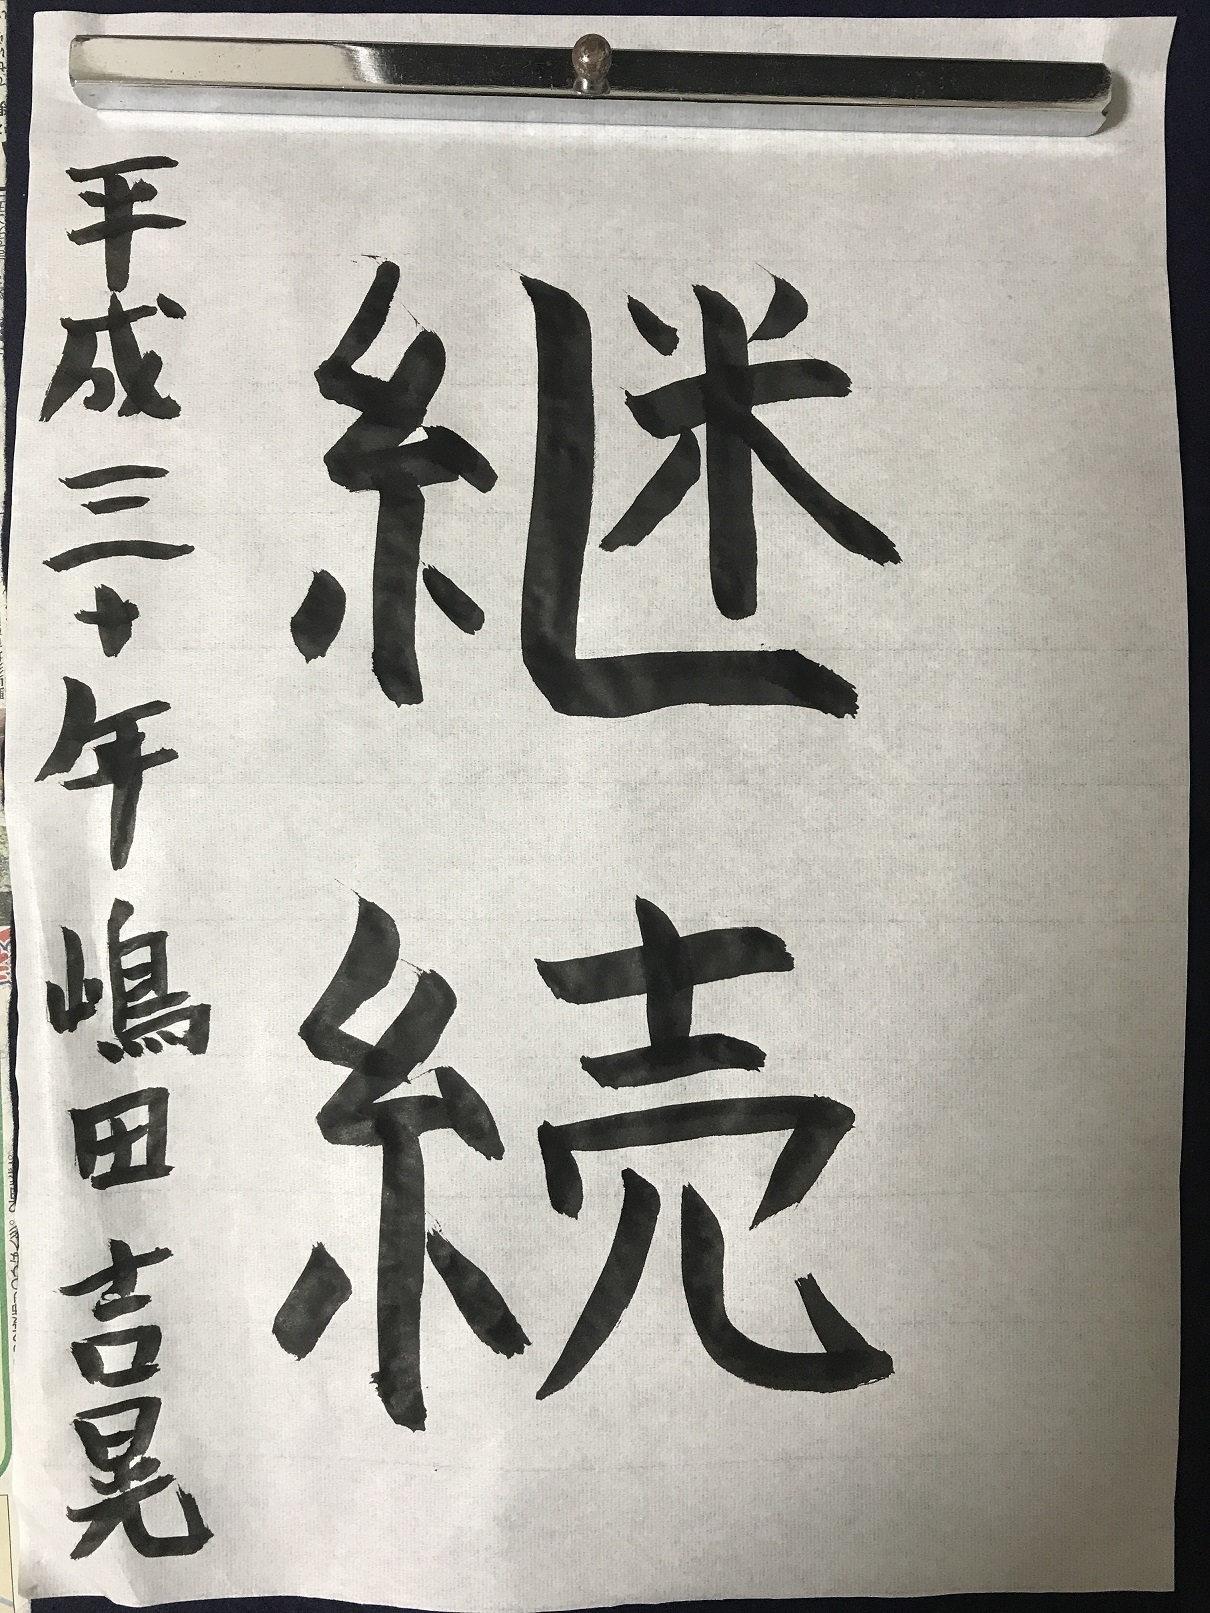 継続
平成三十年嶋田吉晃